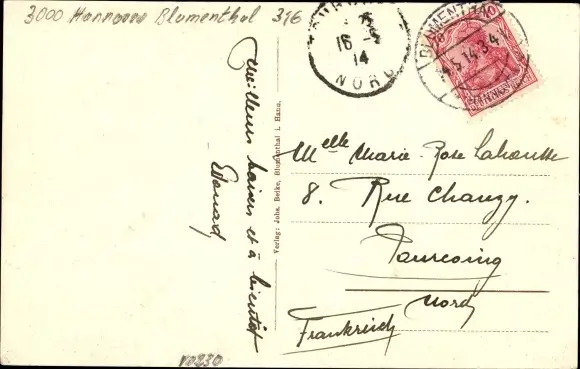 3000 Hannover Blumenthal 316
Meilleurs baisers et à bientôt
Edouard
Verlag: Johs. Beike, Blumenthal i. Hann.
NORD
16
14
BLUMENTHAL
5.14.3-4N
10
Melle Marie-Rose Lahousse
8. Rue Chanzy.
Tourcoing
Nord
Frankreich